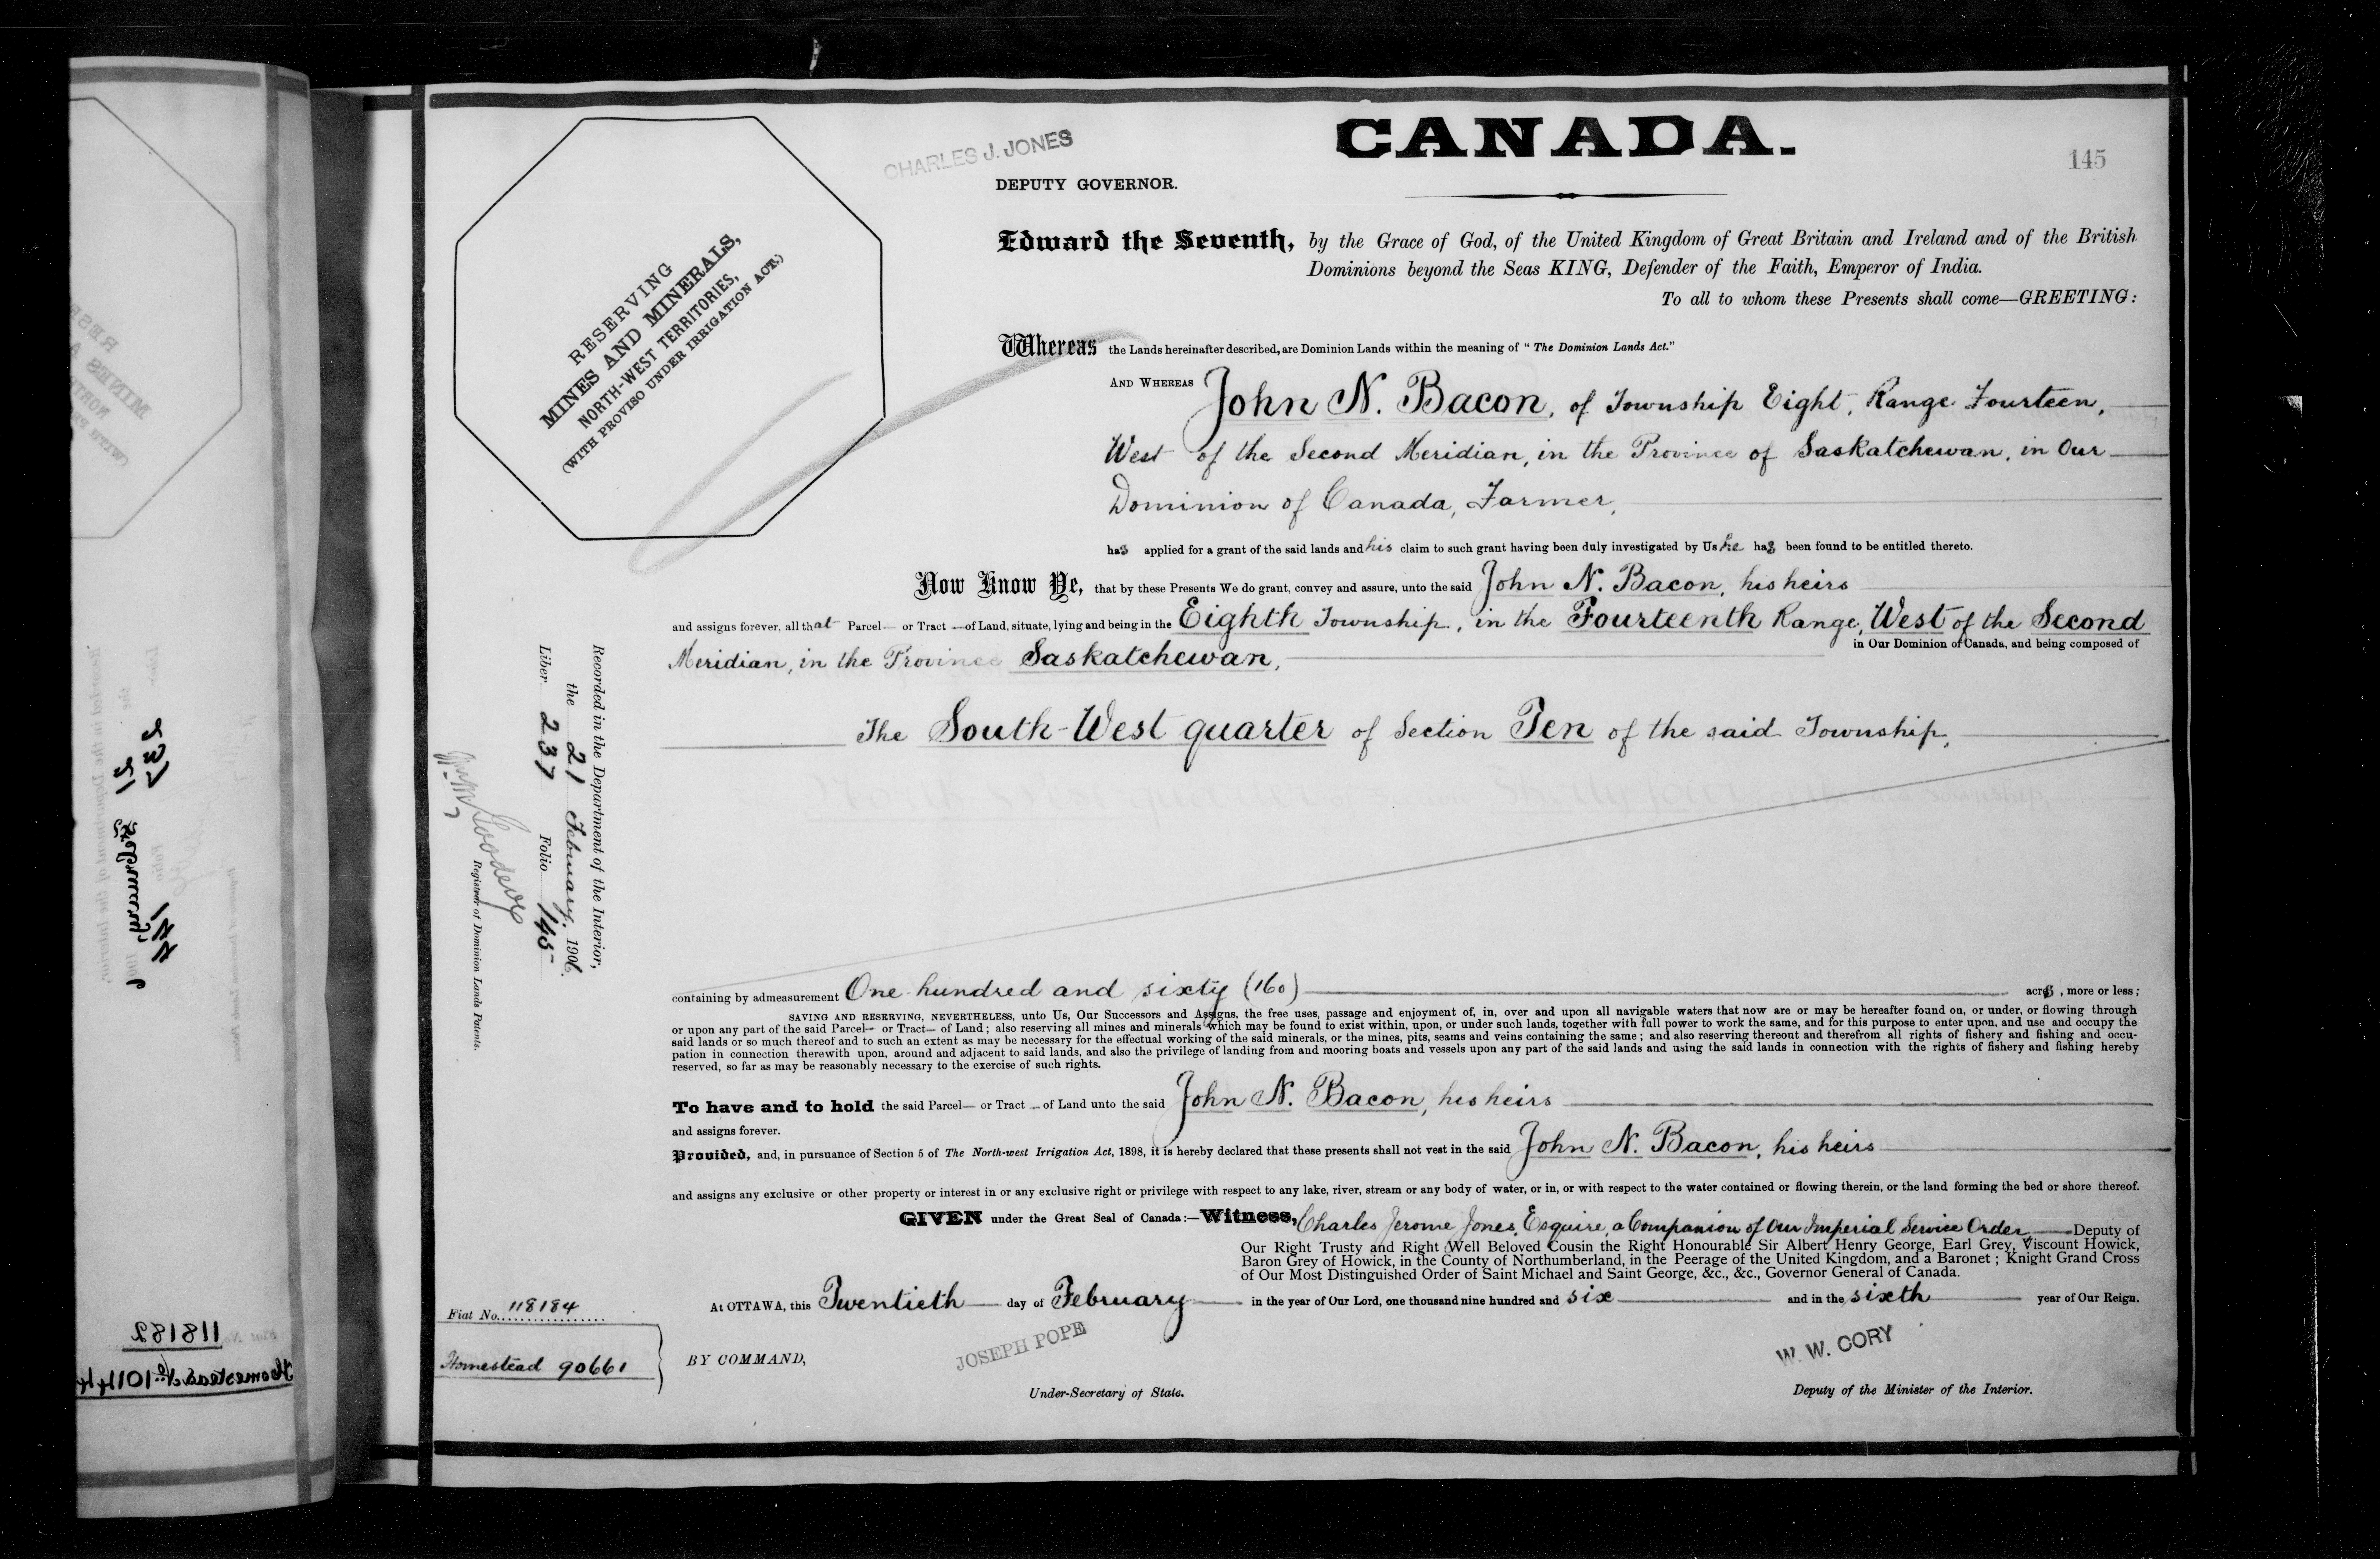 CANADA.
145
CHARLES J. JONES
DEPUTY GOVERNOR.
RESERVING
MINES AND MINERALS,
NORTH-WEST TERRITORIES,
(WITH PROVISO UNDER IRRIGATION ACT.)
Edward the Seventh, by the Grace of God, of the United Kingdom of Great Britain and Ireland and of the British
Dominions beyond the Seas KING, Defender of the Faith, Emperor of India.
To all to whom these Presents shall come—GREETING:
Whereas the Lands hereinafter described, are Dominion Lands within the meaning of "The Dominion Lands Act."
AND WHEREAS John N. Bacon, of Township Eight, Range Fourteen,
West of the Second Meridian, in the Province of Saskatchewan, in Our
Dominion of Canada, Farmer,
has applied for a grant of the said lands and his claim to such grant having been duly investigated by Us he has been found to be entitled thereto.
Now Know Ye, that by these Presents We do grant, convey and assure, unto the said John N. Bacon, his heirs
and assigns forever, all that Parcel— or Tract—of Land, situate, lying and being in the Eighth Township, in the Fourteenth Range, West of the Second
Meridian, in the Province Saskatchewan, in Our Dominion of Canada, and being composed of
The South-West quarter of Section Ten of the said Township,
containing by admeasurement One hundred and sixty (160) acres, more or less;
SAVING AND RESERVING, NEVERTHELESS, unto Us, Our Successors and Assigns, the free uses, passage and enjoyment of, in, over and upon all navigable waters that now are or may be hereafter found on, or under, or flowing through
or upon any part of the said Parcel— or Tract— of Land; also reserving all mines and minerals which may be found to exist within, upon, or under such lands, together with full power to work the same, and for this purpose to enter upon, and use and occupy the
said lands or so much thereof and to such an extent as may be necessary for the effectual working of the said minerals, or the mines, pits, seams and veins containing the same; and also reserving thereout and therefrom all rights of fishery and fishing and occu-
pation in connection therewith upon, around and adjacent to said lands, and also the privilege of landing from and mooring boats and vessels upon any part of the said lands and using the said lands in connection with the rights of fishery and fishing hereby
reserved, so far as may be reasonably necessary to the exercise of such rights.
To have and to hold the said Parcel— or Tract — of Land unto the said John N. Bacon, his heirs
and assigns forever.
Provided, and, in pursuance of Section 5 of The North-west Irrigation Act, 1898, it is hereby declared that these presents shall not vest in the said John N. Bacon, his heirs
and assigns any exclusive or other property or interest in or any exclusive right or privilege with respect to any lake, river, stream or any body of water, or in, or with respect to the water contained or flowing therein, or the land forming the bed or shore thereof.
GIVEN under the Great Seal of Canada:—Witness, Charles Jerome Jones, Esquire, a Companion of Our Imperial Service Order Deputy of
Our Right Trusty and Right Well Beloved Cousin the Right Honourable Sir Albert Henry George, Earl Grey, Viscount Howick,
Baron Grey of Howick, in the County of Northumberland, in the Peerage of the United Kingdom, and a Baronet; Knight Grand Cross
of Our Most Distinguished Order of Saint Michael and Saint George, &c., &c., Governor General of Canada.
At OTTAWA, this Twentieth day of February in the year of Our Lord, one thousand nine hundred and six and in the sixth year of Our Reign.
BY COMMAND,
JOSEPH POPE
Under-Secretary of State.
W. W. CORY
Deputy of the Minister of the Interior.
Recorded in the Department of the Interior,
the 21 February, 1906.
Liber 237 Folio 145
Registrar of Dominion Lands Patents.
Fiat No. 118184
Homestead 90661
237
21 February
144
118182
Homestead No. 10144